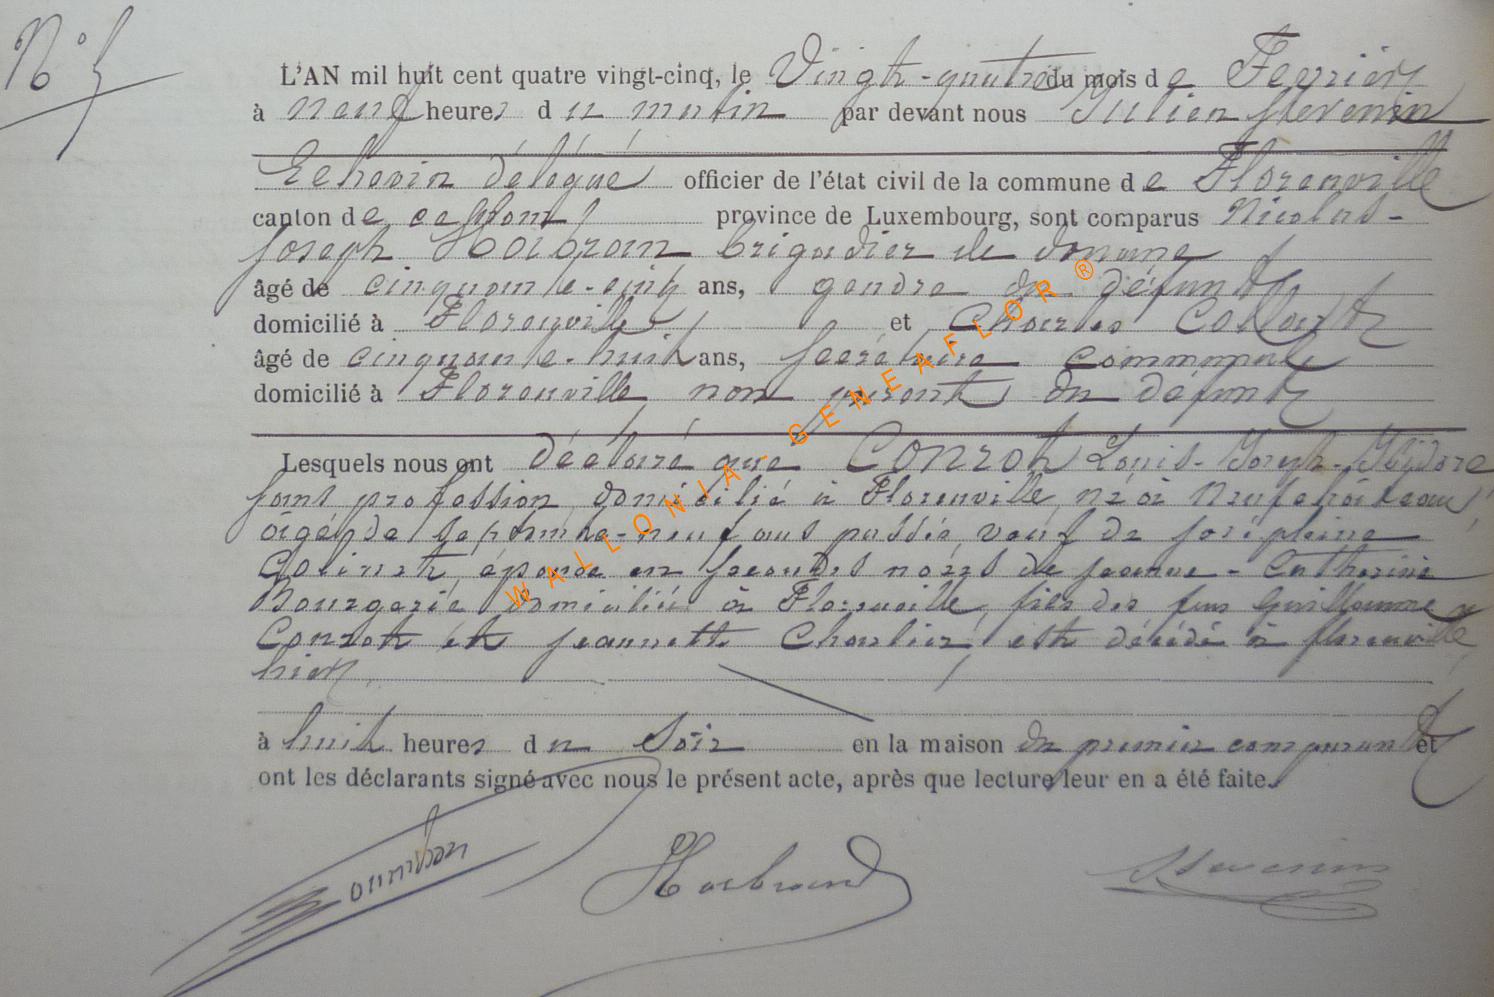 N° 5
L'AN mil huit cent quatre vingt-cinq, le Vingt-quatre du mois de Fevrier
à neuf heures du matin par devant nous Julien Stevenin
Echevin délégué officier de l'état civil de la commune de Florenville
canton de ce nom province de Luxembourg, sont comparus Nicolas-
Joseph Habran brigadier de douane
âgé de cinquante-cinq ans, gendre du défunt
domicilié à Florenville et Charles Collard
âgé de cinquante-huit ans, secrétaire communale
domicilié à Florenville non parent du défunt
Lesquels nous ont déclaré que Conrot Louis-Joseph-Isidore
sans profession domicilié à Florenville, né à Neufchâteau
âgé de septante-neuf ans passés veuf de Joséphine
épouse en secondes noces de Jeanne-Catherine
domiciliée à Florenville, fils des feus Guillaume
Conrot et Jeannette Charlier, est décédé à Florenville
hier,
à huit heures du soir en la maison du premier comparant et
ont les déclarants signé avec nous le présent acte, après que lecture leur en a été faite.
WALLONIA-GENEAFLOR®